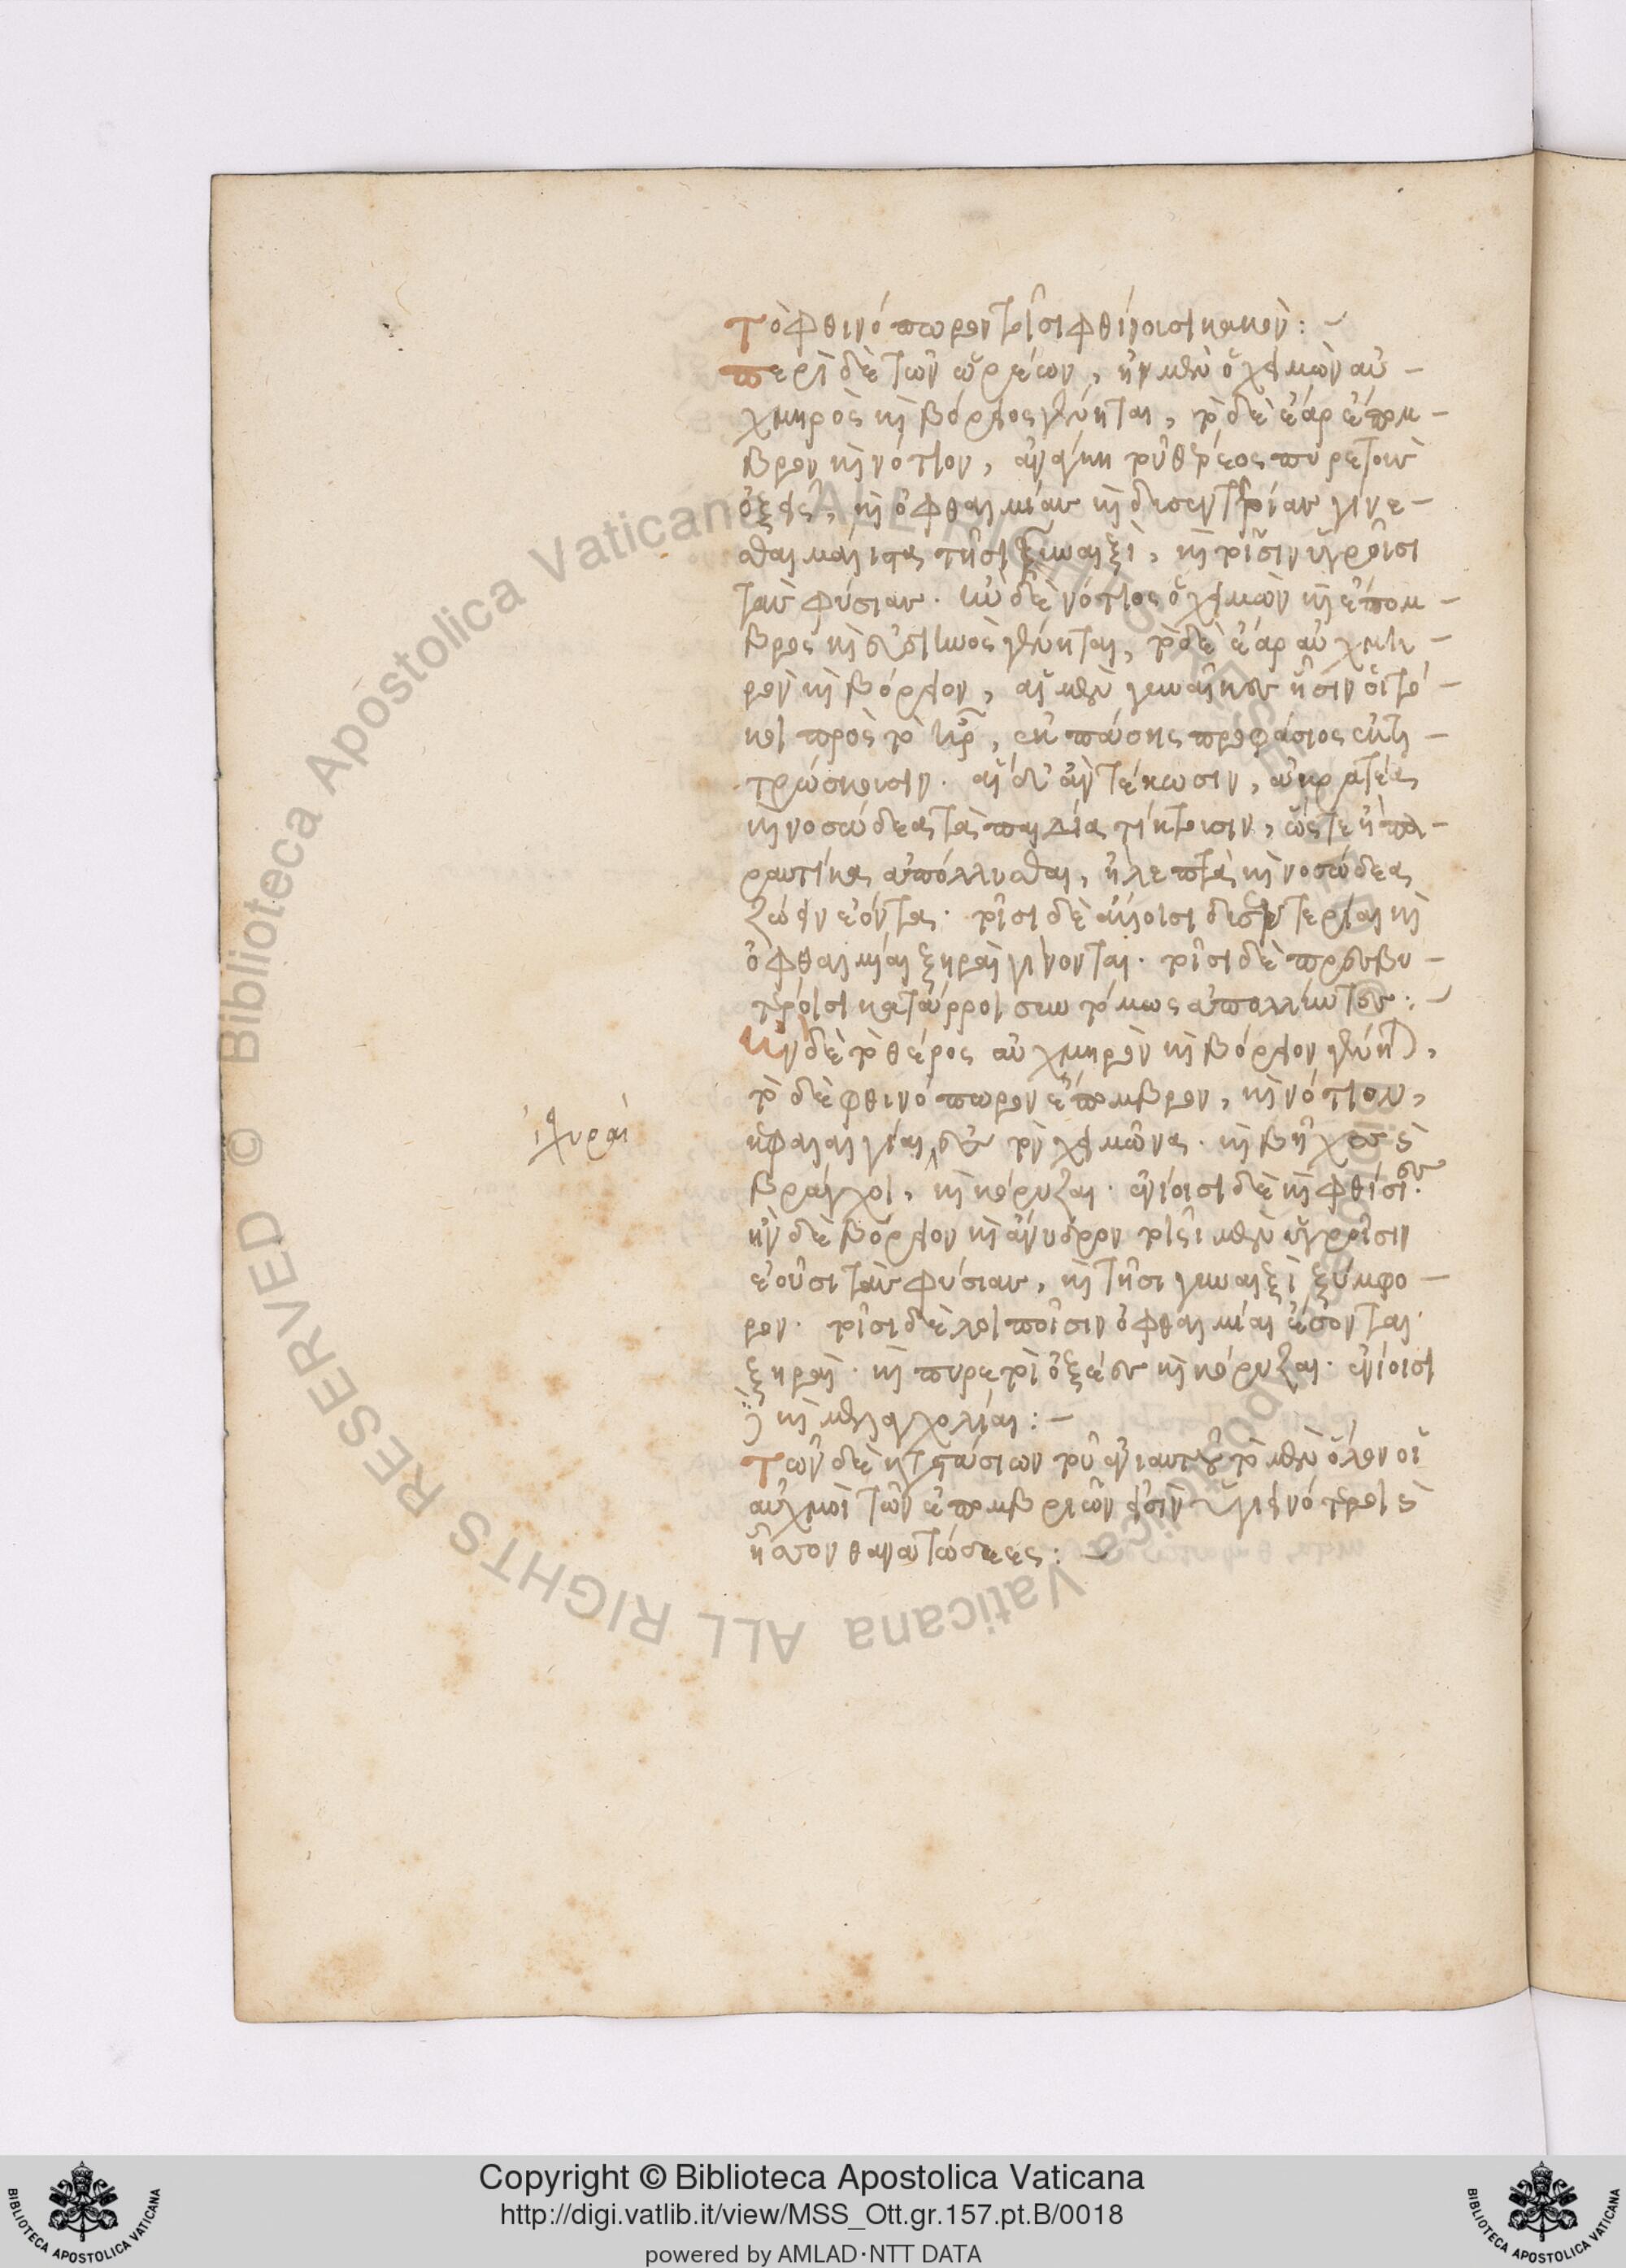 τὸ φθινόπωρον τοῖσι φθίνουσι κακόν: –
περὶ δὲ τῶν ὡρέων, ἢν μὲν ὁ χειμὼν αὐ –
χμηρὸς καὶ βόρειος γένηται, τὸ δὲ ἔαρ ἔπομ –
βρον καὶ νότιον, ἀνάγκη τοῦ θέρεος πυρετοὺς
ὀξεῖς, καὶ ὀφθαλμίας καὶ δυσεντερίας γίνε –
σθαι μάλιστα τῇσι γυναιξὶ, καὶ τοῖσιν ὑγροῖσι
τὰς φύσιας. ἢν δὲ νότιος ὁ χειμὼν καὶ ἔπομ –
βρος καὶ εὐδιεινὸς γένηται, τὸ δὲ ἔαρ αὐχμη –
ρὸν καὶ βόρειον, αἱ μὲν γυναῖκες ᾗσιν οἱ τό –
κοι πρὸς τὸ ἦρ, ἐκ πάσης προφάσιος ἐκτι –
τρώσκουσιν. αἳ δ' ἂν τέκωσιν, ἀκρατέα
καὶ νοσώδεα τὰ παιδία τίκτουσιν, ὥστε ἢ πα –
ραυτίκα ἀπόλλυσθαι, ἢ λεπτὰ καὶ νοσώδεα
ζώειν ἐόντα. τοῖσι δὲ ἄλλοισι δυσεντερίαι καὶ
ὀφθαλμίαι ξηραὶ γίνονται. τοῖσι δὲ πρεσβυ –
τέροισι κατάρροι συντόμως ἀπολλύντες: –
ἢν δὲ τὸ θέρος αὐχμηρὸν καὶ βόρειον γένηται,
τὸ δὲ φθινόπωρον ἔπομβρον, καὶ νότιον,
κεφαλαλγίαι ἐς τὸν χειμῶνα. καὶ βῆχες καὶ
ἰσχυραὶ
βράγχοι, καὶ κόρυζαι. ἐνίοισι δὲ καὶ φθίσιες.
ἢν δὲ βόρειον καὶ ἄνυδρον τοῖσι μὲν ὑγροῖσιν
ἐοῦσι τὰς φύσιας, καὶ τῇσι γυναιξὶ ξύμφο –
ρον. τοῖσι δὲ λοιποῖσιν ὀφθαλμίαι ἔσονται
ξηραὶ. καὶ πυρετοὶ ὀξέες καὶ κόρυζαι. ἐνίοισι
δὲ καὶ μελαγχολίαι: –
τῶν δὲ καταστασίων τοῦ ἐνιαυτοῦ τὸ μὲν ὅλον οἱ
αὐχμοὶ τῶν ἐπομβριῶν εἰσὶν ὑγιεινότεροι καὶ
ἧσσον θανατώδεες: –
Biblioteca Apostolica Vaticana ALL RIGHTS RESERVED ©
Biblioteca Apostolica Vaticana ALL RIGHTS RESERVED ©
BIBLIOTECA APOSTOLICA VATICANA
Copyright © Biblioteca Apostolica Vaticana
http://digi.vatlib.it/view/MSS_Ott.gr.157.pt.B/0018
powered by AMLAD·NTT DATA
BIBLIOTECA APOSTOLICA VATICANA